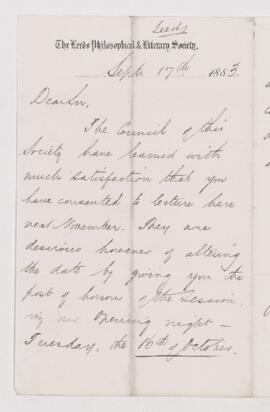 Leeds
The Leeds Philosophical & Literary Society.
Sept. 17th 1883
Dear Sir,
The Council of this
Society have learned with
much satisfaction that you
have consented to lecture here
next November. They are
desirous however of altering
the date by giving you the
post of honor of the Session,
viz our Opening night -
Tuesday, the 16th of October.